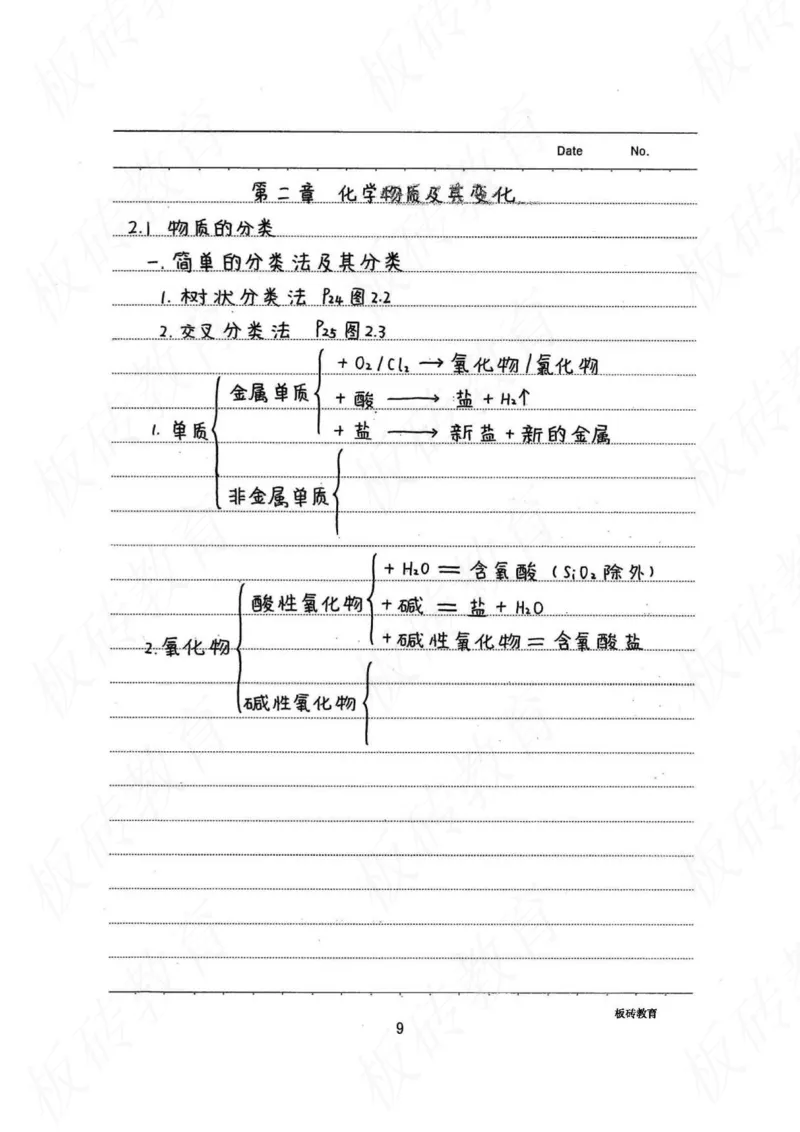 Date No.
第二章 化学物质及其变化
2.1 物质的分类
一.简单的分类法及其分类
1. 树状分类法 P24 图2.2
2. 交叉分类法 P25 图2.3
+ O₂/Cl₂ → 氧化物/氯化物
金属单质
+ 酸 → 盐 + H₂↑
1. 单质
+ 盐 → 新盐 + 新的金属
非金属单质
+ H₂O = 含氧酸 (SiO₂ 除外)
酸性氧化物
+ 碱 = 盐 + H₂O
2. 氧化物
+ 碱性氧化物 = 含氧酸盐
碱性氧化物
板砖教育
9